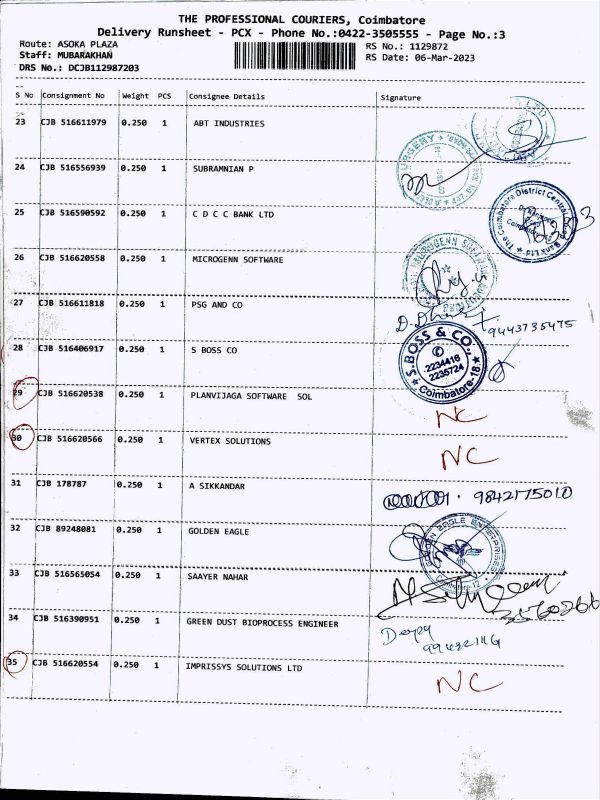 THE PROFESSIONAL COURIERS, Coimbatore
Delivery Runsheet - PCX - Phone No.:0422-3505555 - Page No.:3
Route: ASOKA PLAZA
RS No.: 1129872
Staff: MUBARAKHAN
RS Date: 06-Mar-2023
DRS No.: DCJB112987203
S No Consignment No Weight PCS Consignee Details Signature
23 CJB 516611979 0.250 1 ABT INDUSTRIES
24 CJB 516556939 0.250 1 SUBRAMNIAN P
SURGERY
25 CJB 516590592 0.250 1 C D C C BANK LTD
The Coimbatore District Central
Bank Ltd
26 CJB 516620558 0.250 1 MICROGENN SOFTWARE
MICROGENN
27 CJB 516611818 0.250 1 PSG AND CO
9443735475
28 CJB 516406917 0.250 1 S BOSS CO
S. BOSS & CO.,
2234416
2235724
Coimbatore-18
29 CJB 516620538 0.250 1 PLANVIJAGA SOFTWARE SOL
NC
30 CJB 516620566 0.250 1 VERTEX SOLUTIONS
NC
31 CJB 178787 0.250 1 A SIKKANDAR
9842175010
32 CJB 89248081 0.250 1 GOLDEN EAGLE
GOLDEN EAGLE ENTERPRISES
Coimbatore-12
33 CJB 516565054 0.250 1 SAAYER NAHAR
34 CJB 516390951 0.250 1 GREEN DUST BIOPROCESS ENGINEER
Deepa
35 CJB 516620554 0.250 1 IMPRISSYS SOLUTIONS LTD
NC